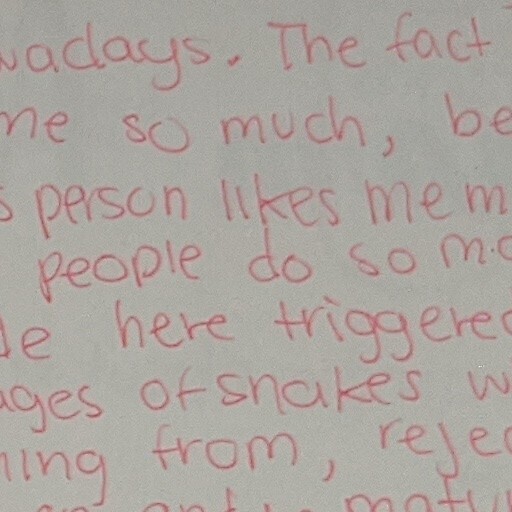 wadays. The fact
me so much, be
s person likes me m
people do so m.
le here triggered
ages of snakes w
ning from, rejec